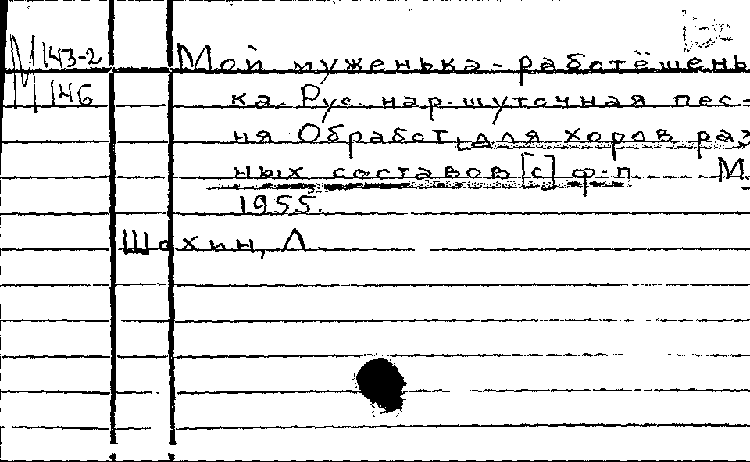 М 143-2 Мой муженька-работёшень
146 ка. Рус. нар. шуточная пес-
ня Обработ. для хоров раз
ных составов [с] ф-п. М.
1955.
Шохин, Л